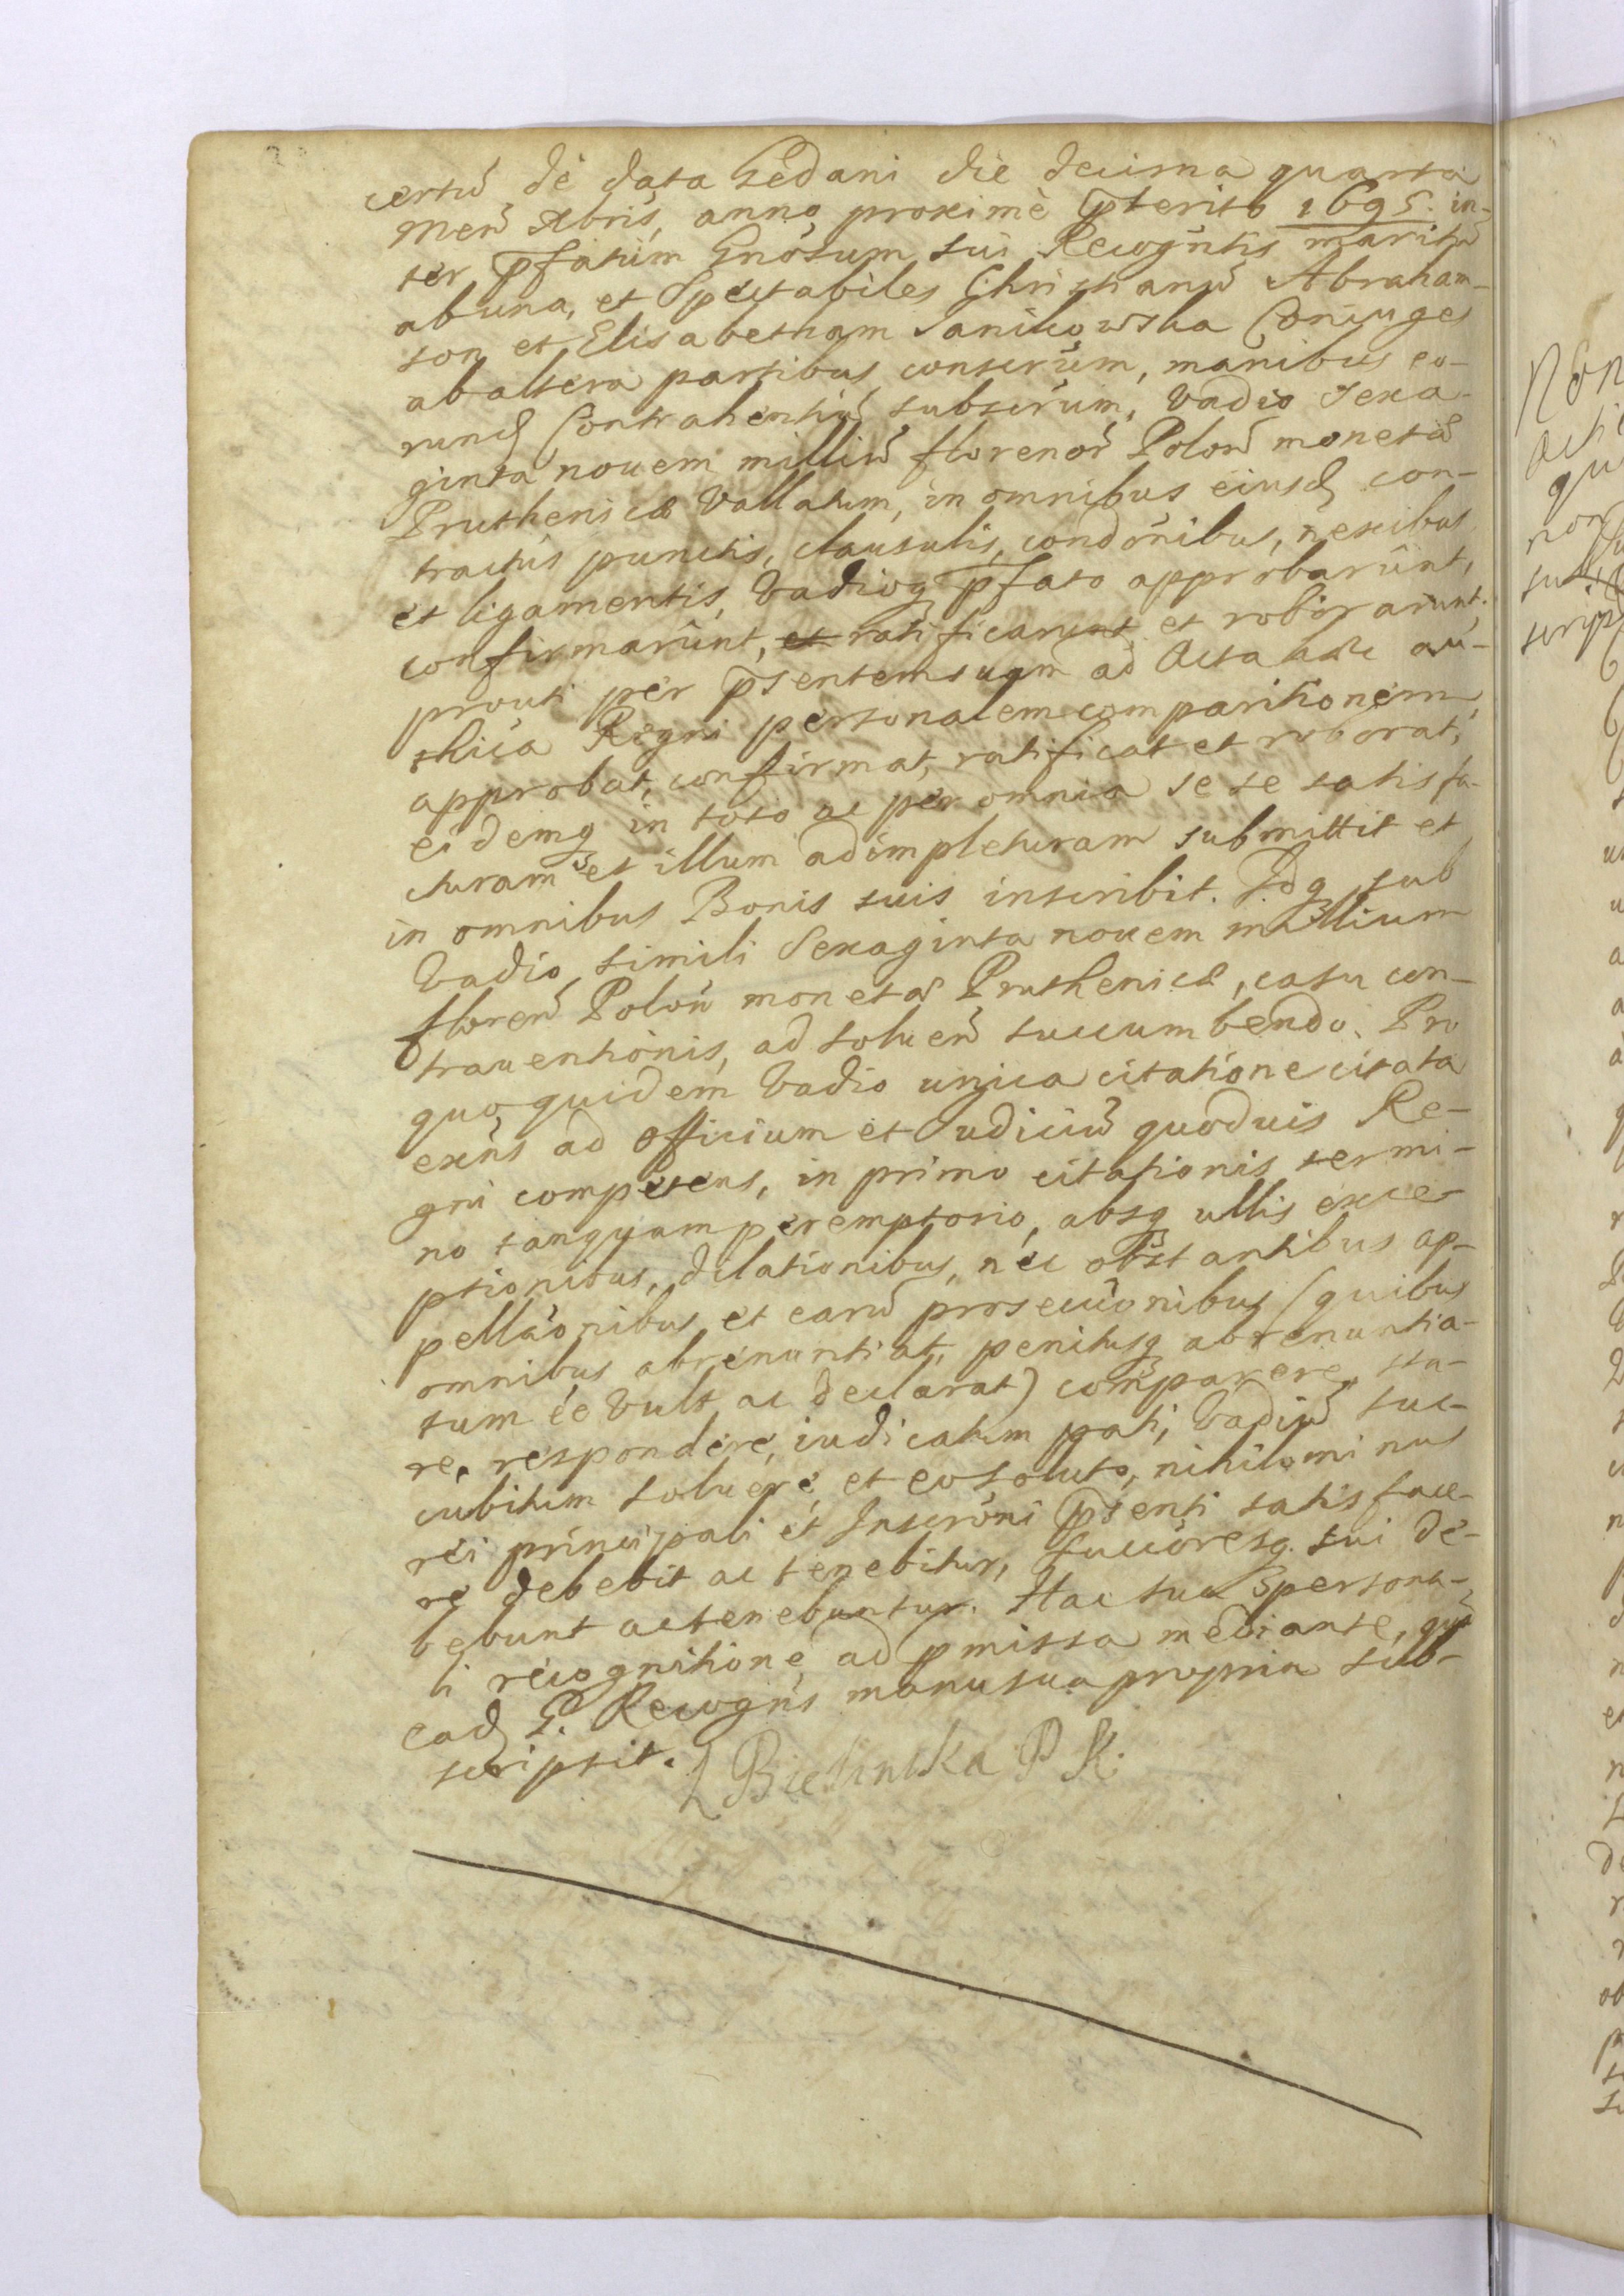 certū de data Gedani die decima quarta
Men̄ Xbris, anno proximè p̄terito 1695. in-
ter p̄fatum Gnōsum sui Recogn̄tis maritū
ab una, et Spectabiles Christianū Abraham-
son et Elisabetham Janikowska Coniuges
ab altera partibus conscr̄um, manibus eo-
rund Contrahentiū subscr̄um, Vadio sexa-
ginta nouem milliū florenor̄ Polon̄ monetæ
Pruthenicæ Vallatum, in omnibus eiusd con-
tractus punctis, clausulis, condōnibus, nexibus
et ligamentis, Vadioq p̄fato approbarunt,
confirmarunt, et ratificarunt et roborarunt.
prouti per p̄sentem suam ad Acta hæc au-
thica Regni personalem comparitionem
approbat, confirmat, ratificat et roborat,
eidemq in toto ac per omnia se se satisfa-
cturam et illum adimpleturam submittit et
in omnibus Bonis suis inscribit. Idq sub
Vadio simili Sexaginta nouem millium
floren̄ Polon̄ monetæ Pruthenicæ, casu con-
trauentionis, ad soluen̄ succumbendo. Pro
quo quidem Vadio unica citatione citata
exens ad Officium et Iudiciū quoduis Re-
gni competens, in primo citationis termi-
no tanquam peremptorio, absq ullis exce-
ptionibus, dilationibus, nec obstantibus ap-
pellāonibus et earū prosecuōonibus (quibus
omnibus abrenuntiat, penitusq abrenuntia-
tum ēe Vult ac declarat) comparere, sta-
re, respondere, iudicatum pati, Vadiū suc-
cubitum soluere et eo soluto, nihilominus
rei principali et Inscrōni p̄senti satisface-
re debebit ac tenebitur, succōresq. sui de-
bebunt ac tenebuntur. Hac sua persona-
li recognitione ad p̄missa mediante, quā
ead G. Recogn̄s manu sua propria sub-
scripsit.
L Bielinska P K.
Non